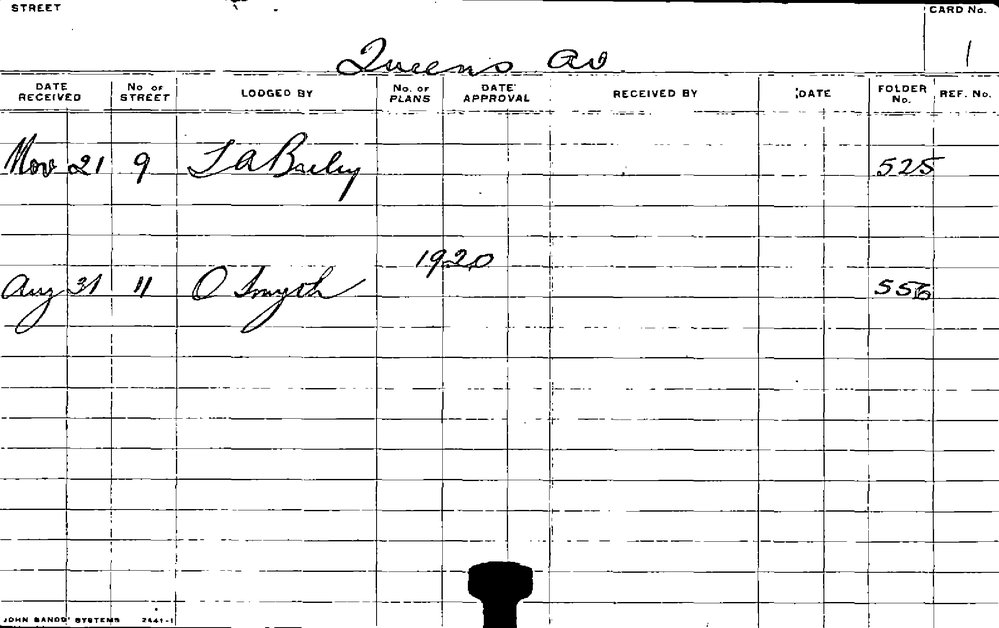 STREET CARD No.
Queens Av. 1
DATE RECEIVED No OF STREET LODGED BY No. OF PLANS DATE APPROVAL RECEIVED BY DATE FOLDER No. REF. No.
Nov 21 9 L A Bailey 525
1920
Aug 31 11 O Smyth 556
JOHN SANDS' SYSTEMS 2441-1